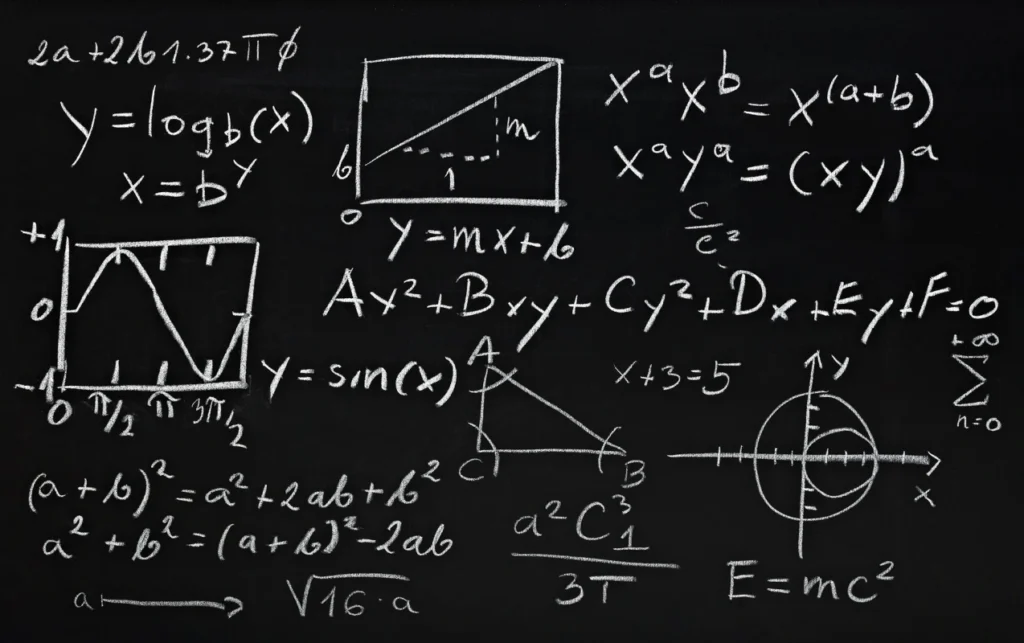 2a+2b1.37πϕ
y=log_b(x)
x=b^y
b
m
1
0
y=mx+b
x^a x^b=x^(a+b)
x^a y^a=(xy)^a
c/c²
+1
0
-1
0 π/2 π 3π/2
y=sin(x)
Ax²+Bxy+Cy²+Dx+Ey+F=0
A
C
B
x+3=5
y
x
+∞
∑
n=0
(a+b)²=a²+2ab+b²
a²+b²=(a+b)²-2ab
a
√16·a
a²C₁³
3T
E=mc²